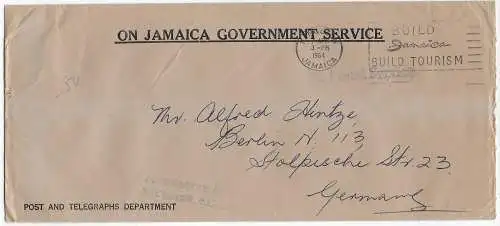 ON JAMAICA GOVERNMENT SERVICE
1964
JAMAICA
BUILD
Jamaica
BUILD TOURISM
Mr. Alfred Hintze,
Berlin N. 113,
Stolpische Str. 23
Germany
POST AND TELEGRAPHS DEPARTMENT